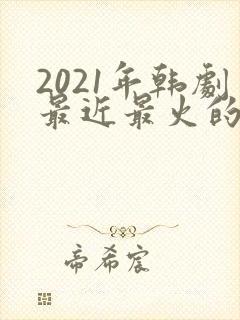 2021年韩劇
最近最火的
帝希宸